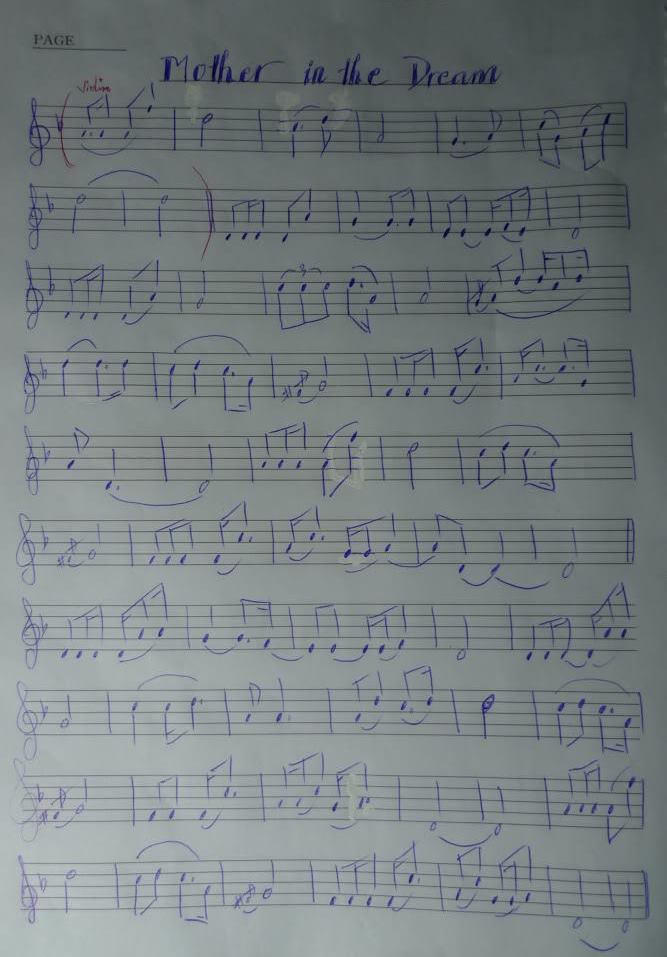 PAGE
Mother in the Dream
Violin
3